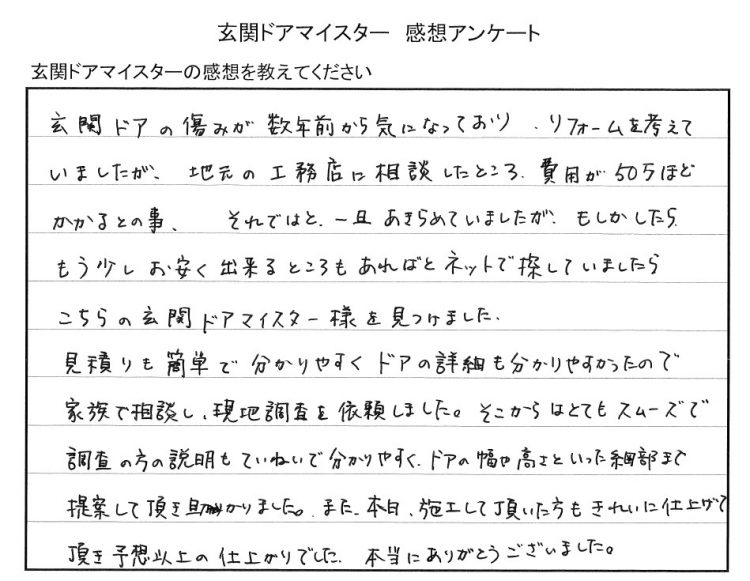 玄関ドアマイスター 感想アンケート
玄関ドアマイスターの感想を教えてください
玄関ドアの傷みが数年前から気になっており、リフォームを考えて
いましたが、地元の工務店に相談したところ、費用が50万ほど
かかるとの事、 それではと、一旦あきらめていましたが、もしかしたら
もう少しお安く出来るところもあればとネットで探していましたら
こちらの玄関ドアマイスター様を見つけました。
見積りも簡単で分かりやすくドアの詳細も分かりやすかったので
家族で相談し、現地調査を依頼しました。そこからはとてもスムーズで
調査の方の説明もていねいで分かりやすく、ドアの幅や高さといった細部まで
提案して頂き助かりました。また、本日、施工して頂いた方もきれいに仕上げて
頂き予想以上の仕上がりでした。本当にありがとうございました。